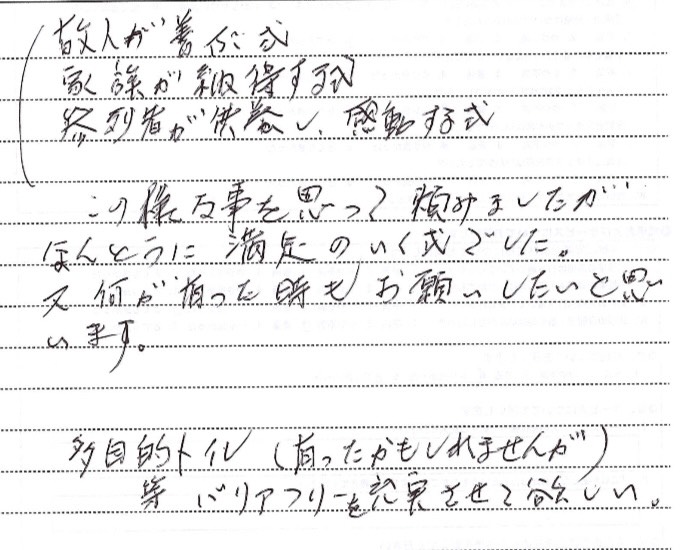 故人が喜ぶ式
家族が納得する式
参列者が供養し、感動する式
この様な事を思って頼みましたが
ほんとうに満足のいく式でした。
又何が有った時もお願いしたいと思い
います。
多目的トイレ(有ったかもしれませんが)
等 バリアフリーを充実させて欲しい。